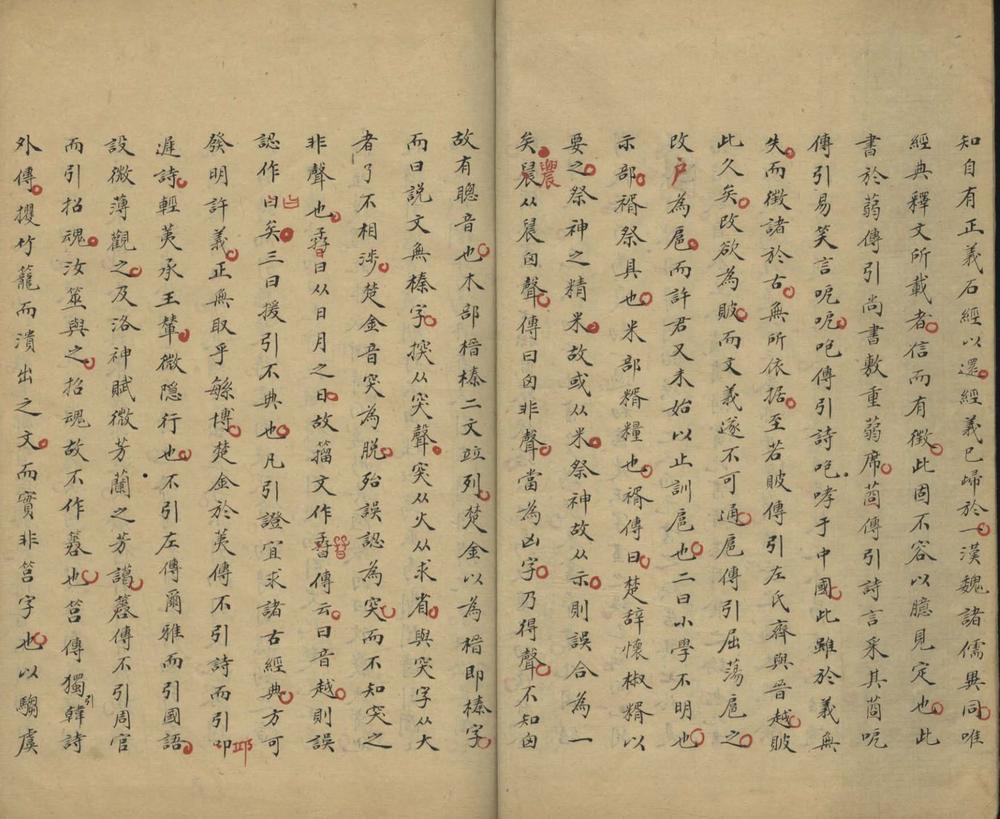 知自有正義石經以還經義已歸於一漢魏諸儒異同唯
經典釋文所載者信而有徵此固不容以臆見定也此
書於蒻傳引尚書敷重蒻席莔傳引詩言采其莔呃
傳引易笑言呃呃咆傳引詩咆哮于中國此雖於義無
失而徵諸於古無所依据至若貱傳引左氏齊與晉越貱
此久矣改欲為貱而文義遂不可通扈傳引屈蕩扈之
改户為扈而許君又未始以止訓扈也二曰小學不明也
示部䊛祭具也米部糈糧也䊛傳曰楚辭懷椒糈以
要之祭神之精米故或从米祭神故从示則誤合為一
矣農从晨囟聲傳曰囟非聲當為凶字乃得聲不知囟
故有聰音也木部榗榛二文竝列楚金以為榗即榛字
而曰說文無榛字揬从突聲突从火从求省與突字从犬
者了不相涉楚金音突為脫殆誤認為突而不知突之
非聲也曰从日月之日故籀文作傳云日音越則誤
認作曰矣三曰援引不典也凡引證宜求諸古經典方可
發明許義正無取乎緐博楚金於荑傳不引詩而引邛
遲詩輕荑承玉輦微隱行也不引左傳爾雅而引國語
設微薄觀之及洛神賦微芳蘭之芳藹簭傳不引周官
而引招魂汝筮與之招魂故不作簭也筥傳獨引韓詩
外傳攫竹籠而潰出之文而實非筥字也以騶虞